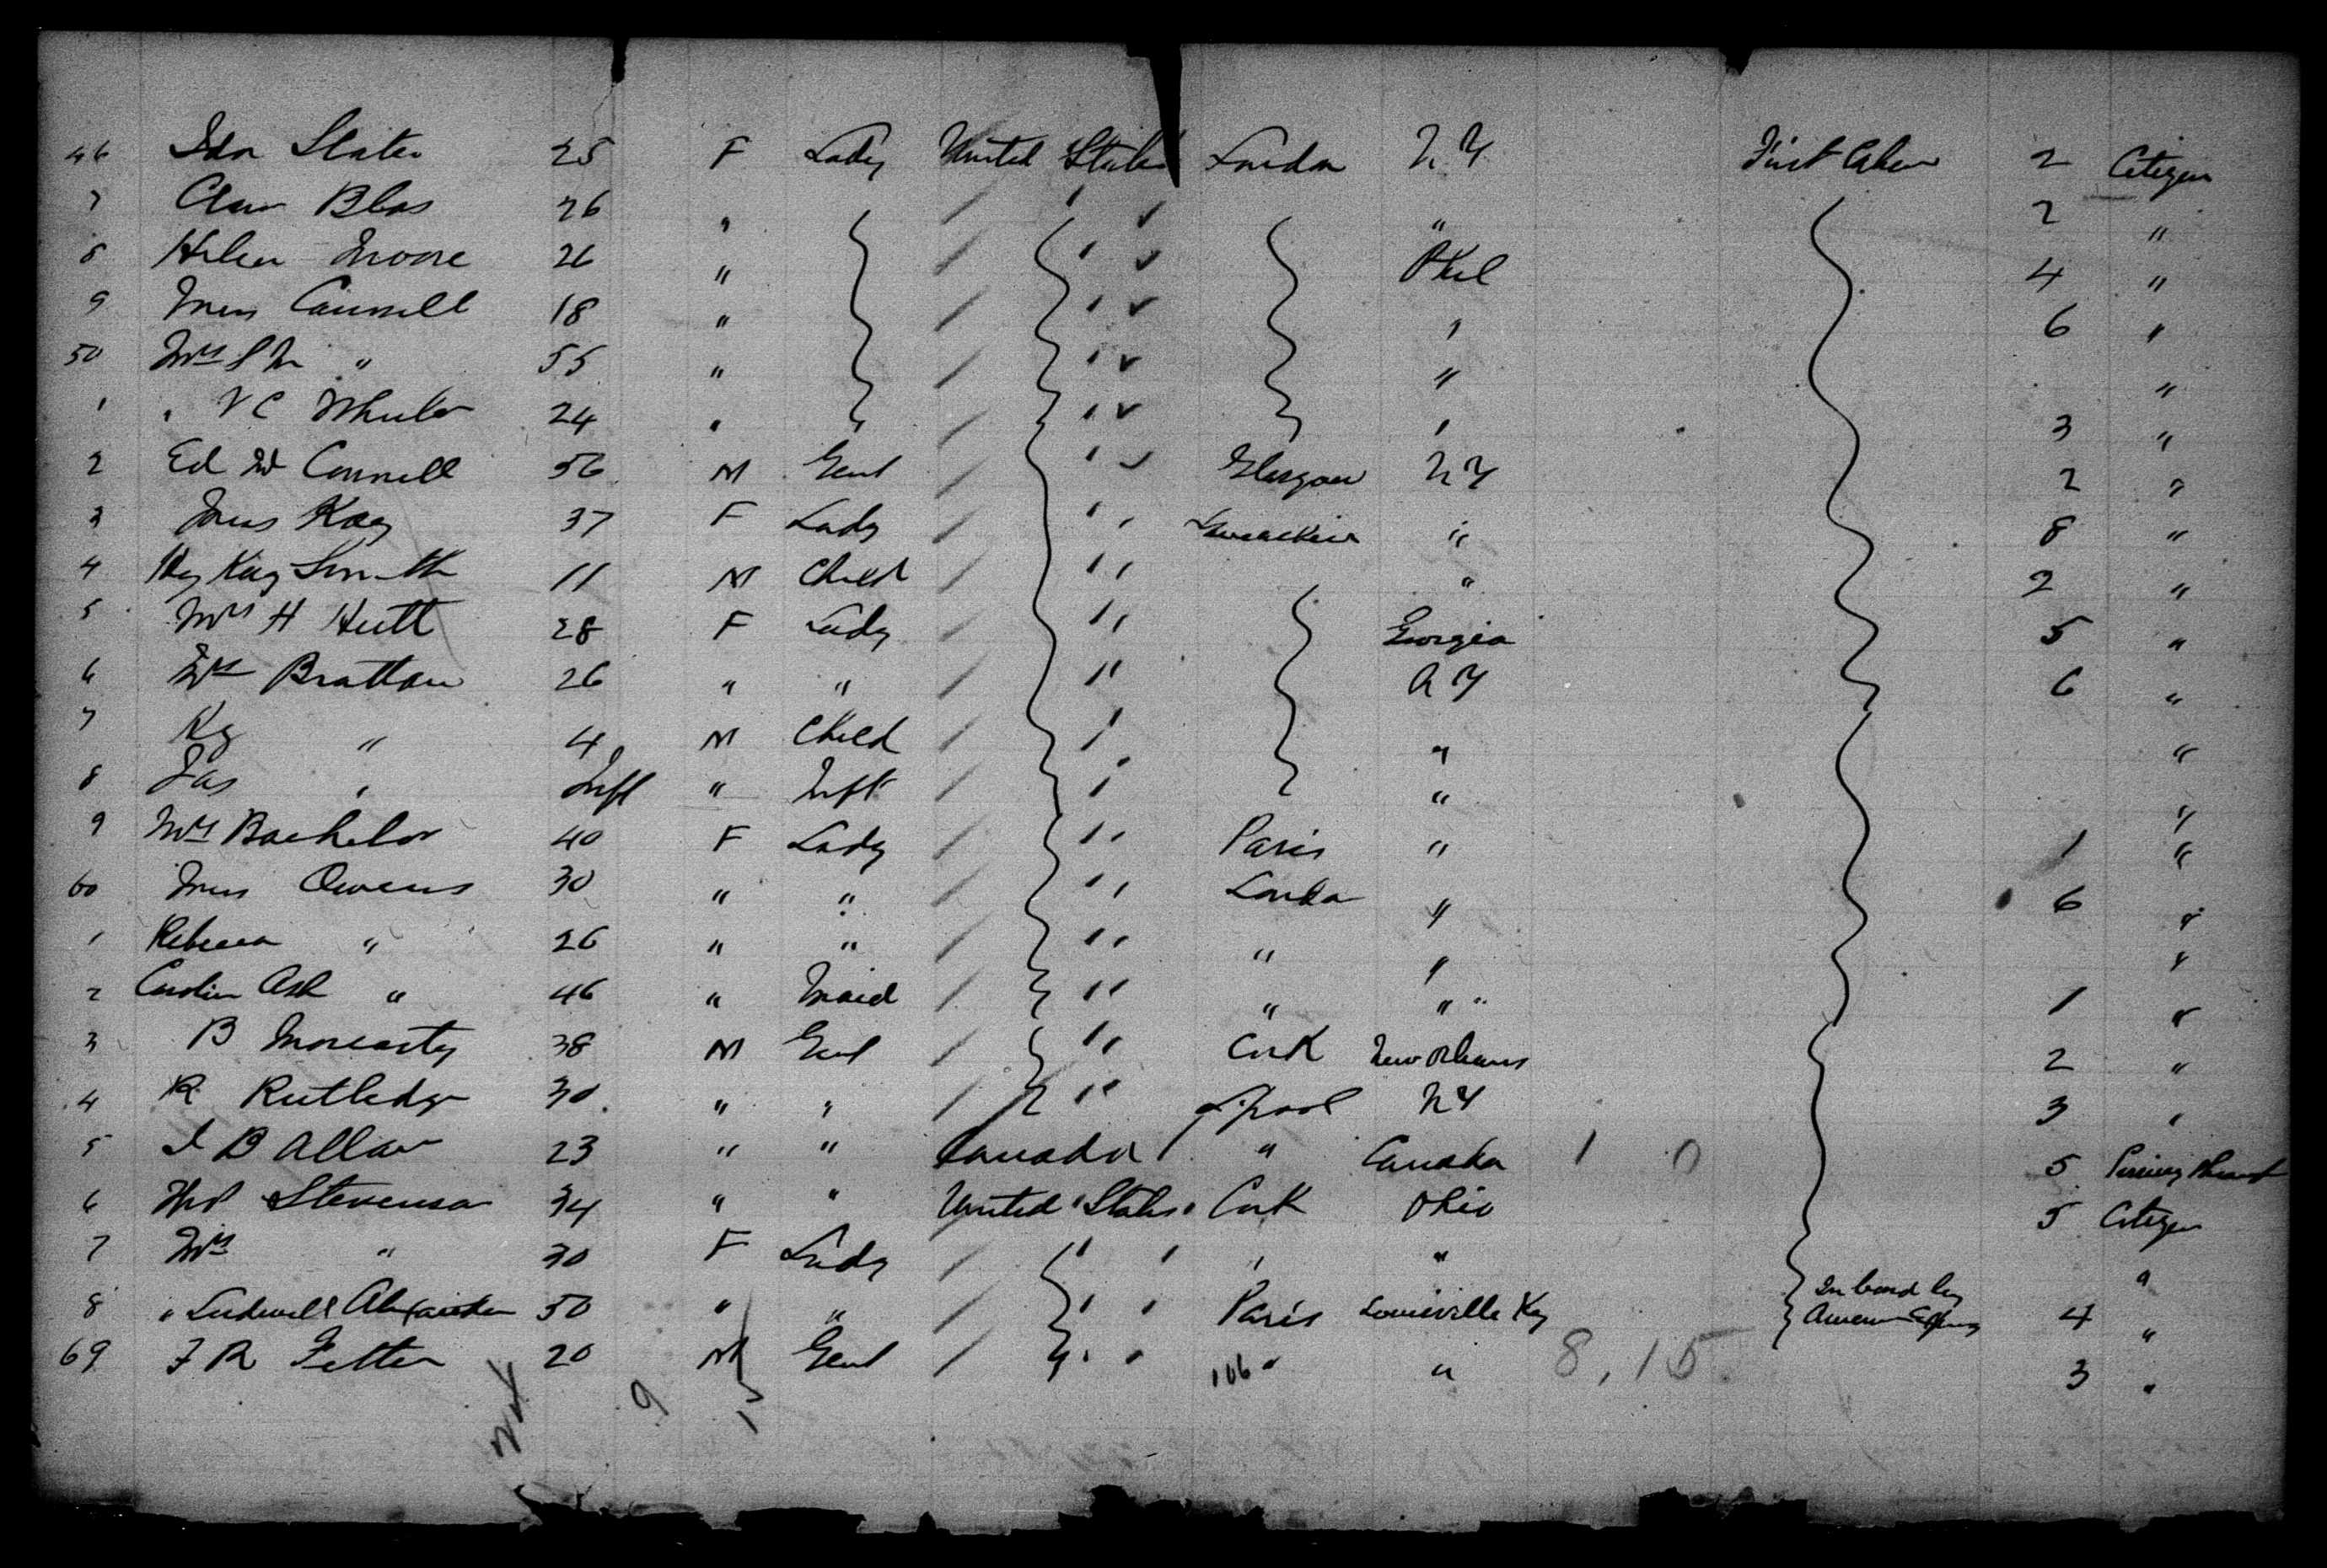 46 Ida Slater 25 F Lady United States London N Y First Cabin 2 Citizen
7 Clara Blos 26 " " 2 "
8 Helen Moore 26 " Phil 4 "
9 Miss Connell 18 " " 6 "
50 Mrs S M " 55 " " "
1 " V C Wheeler 24 " " 3 "
2 Ed W Connell 56 M Gent " Glasgow N Y 2 "
3 Miss Kay 37 F Lady " " " 8 "
4 Hy Kay Smith 11 M Child " " " 2 "
5 Mrs H Hutt 28 F Lady " " Georgia 5 "
6 Mrs Bratton 26 " " " " N Y 6 "
7 Hy " 4 M Child " " "
8 Jas " Inft " Inft " " "
9 Mrs Bachelor 40 F Lady " " Paris " 1 "
60 Miss Owens 30 " " " " London " 6 "
1 Rebecca " 26 " " " " " " "
2 Caroline Ash " 46 " Maid " " " " 1 "
3 B Moriarty 38 M Gent " " Cork New Orleans 2 "
4 R Rutledge 30 " " " " L.pool N Y 3 "
5 J B Allan 23 " " Canada " Canada 1 0 5
6 Thos Stevenson 34 " " United States Cork Ohio 5 Citizen
7 Mrs " 30 F Lady " " " " "
8 " Ludwell Alexander 50 " " " " Paris Louisville Ky In bond by 4 "
69 F R Fetter 20 M Gent " " " " 8,15 3 "
106
9